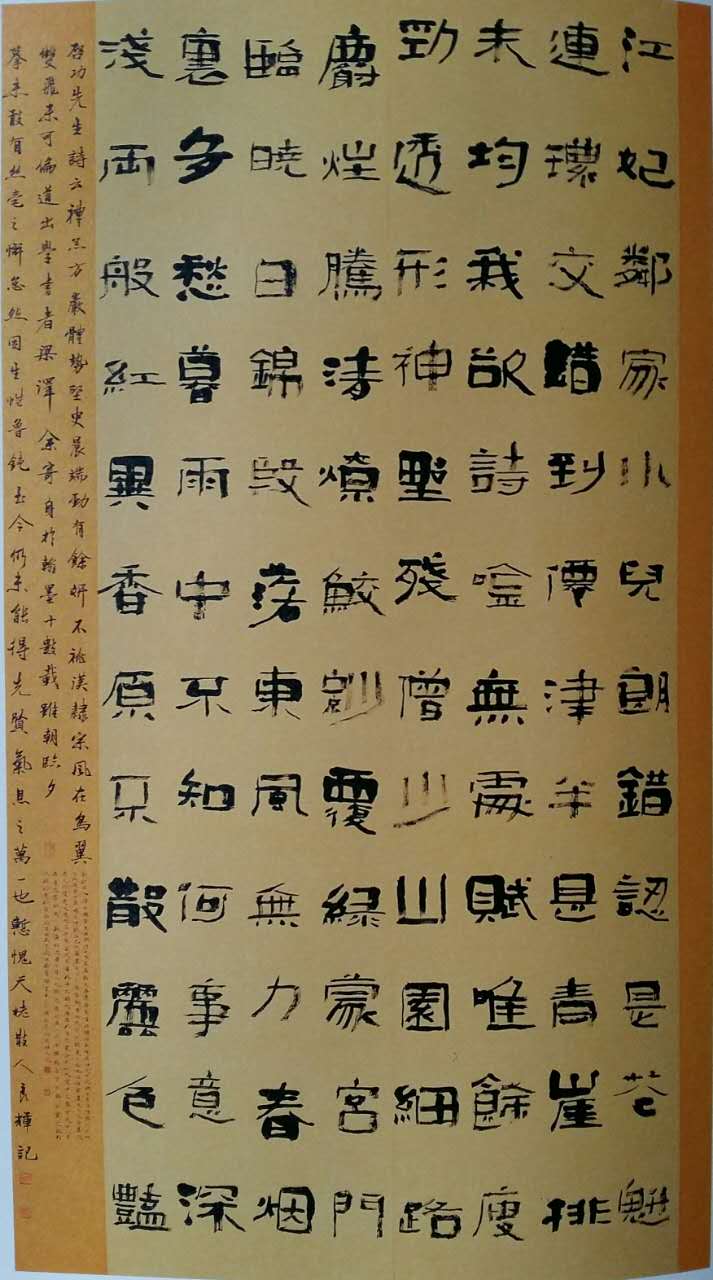 江妃鄰家小兒郎錯認是花魁
連環交錯到津半是青崖排
未均我欲詩唫無處賦唯餘瘦
勁透形神野殘僧少山園細路
麝煙騰渚燎鮫紗覆綠蒙宮門
臨曉日錦段落東風無力春烟
裏多愁暮雨中不知何事意深
淺兩般紅異香原不散麗色豔
啓功先生詩云禮器方嚴體勢堅史晨端勁有餘妍不祧漢隸宗風在鳥翼
雙飛未可偏道出學書者梁澤余寄身於翰墨十數載雖朝臨夕
摹未敢有丝毫之懈怠然因生性魯鈍至今仍未能得先賢氣息之萬一也慙愧天姥散人良輝記